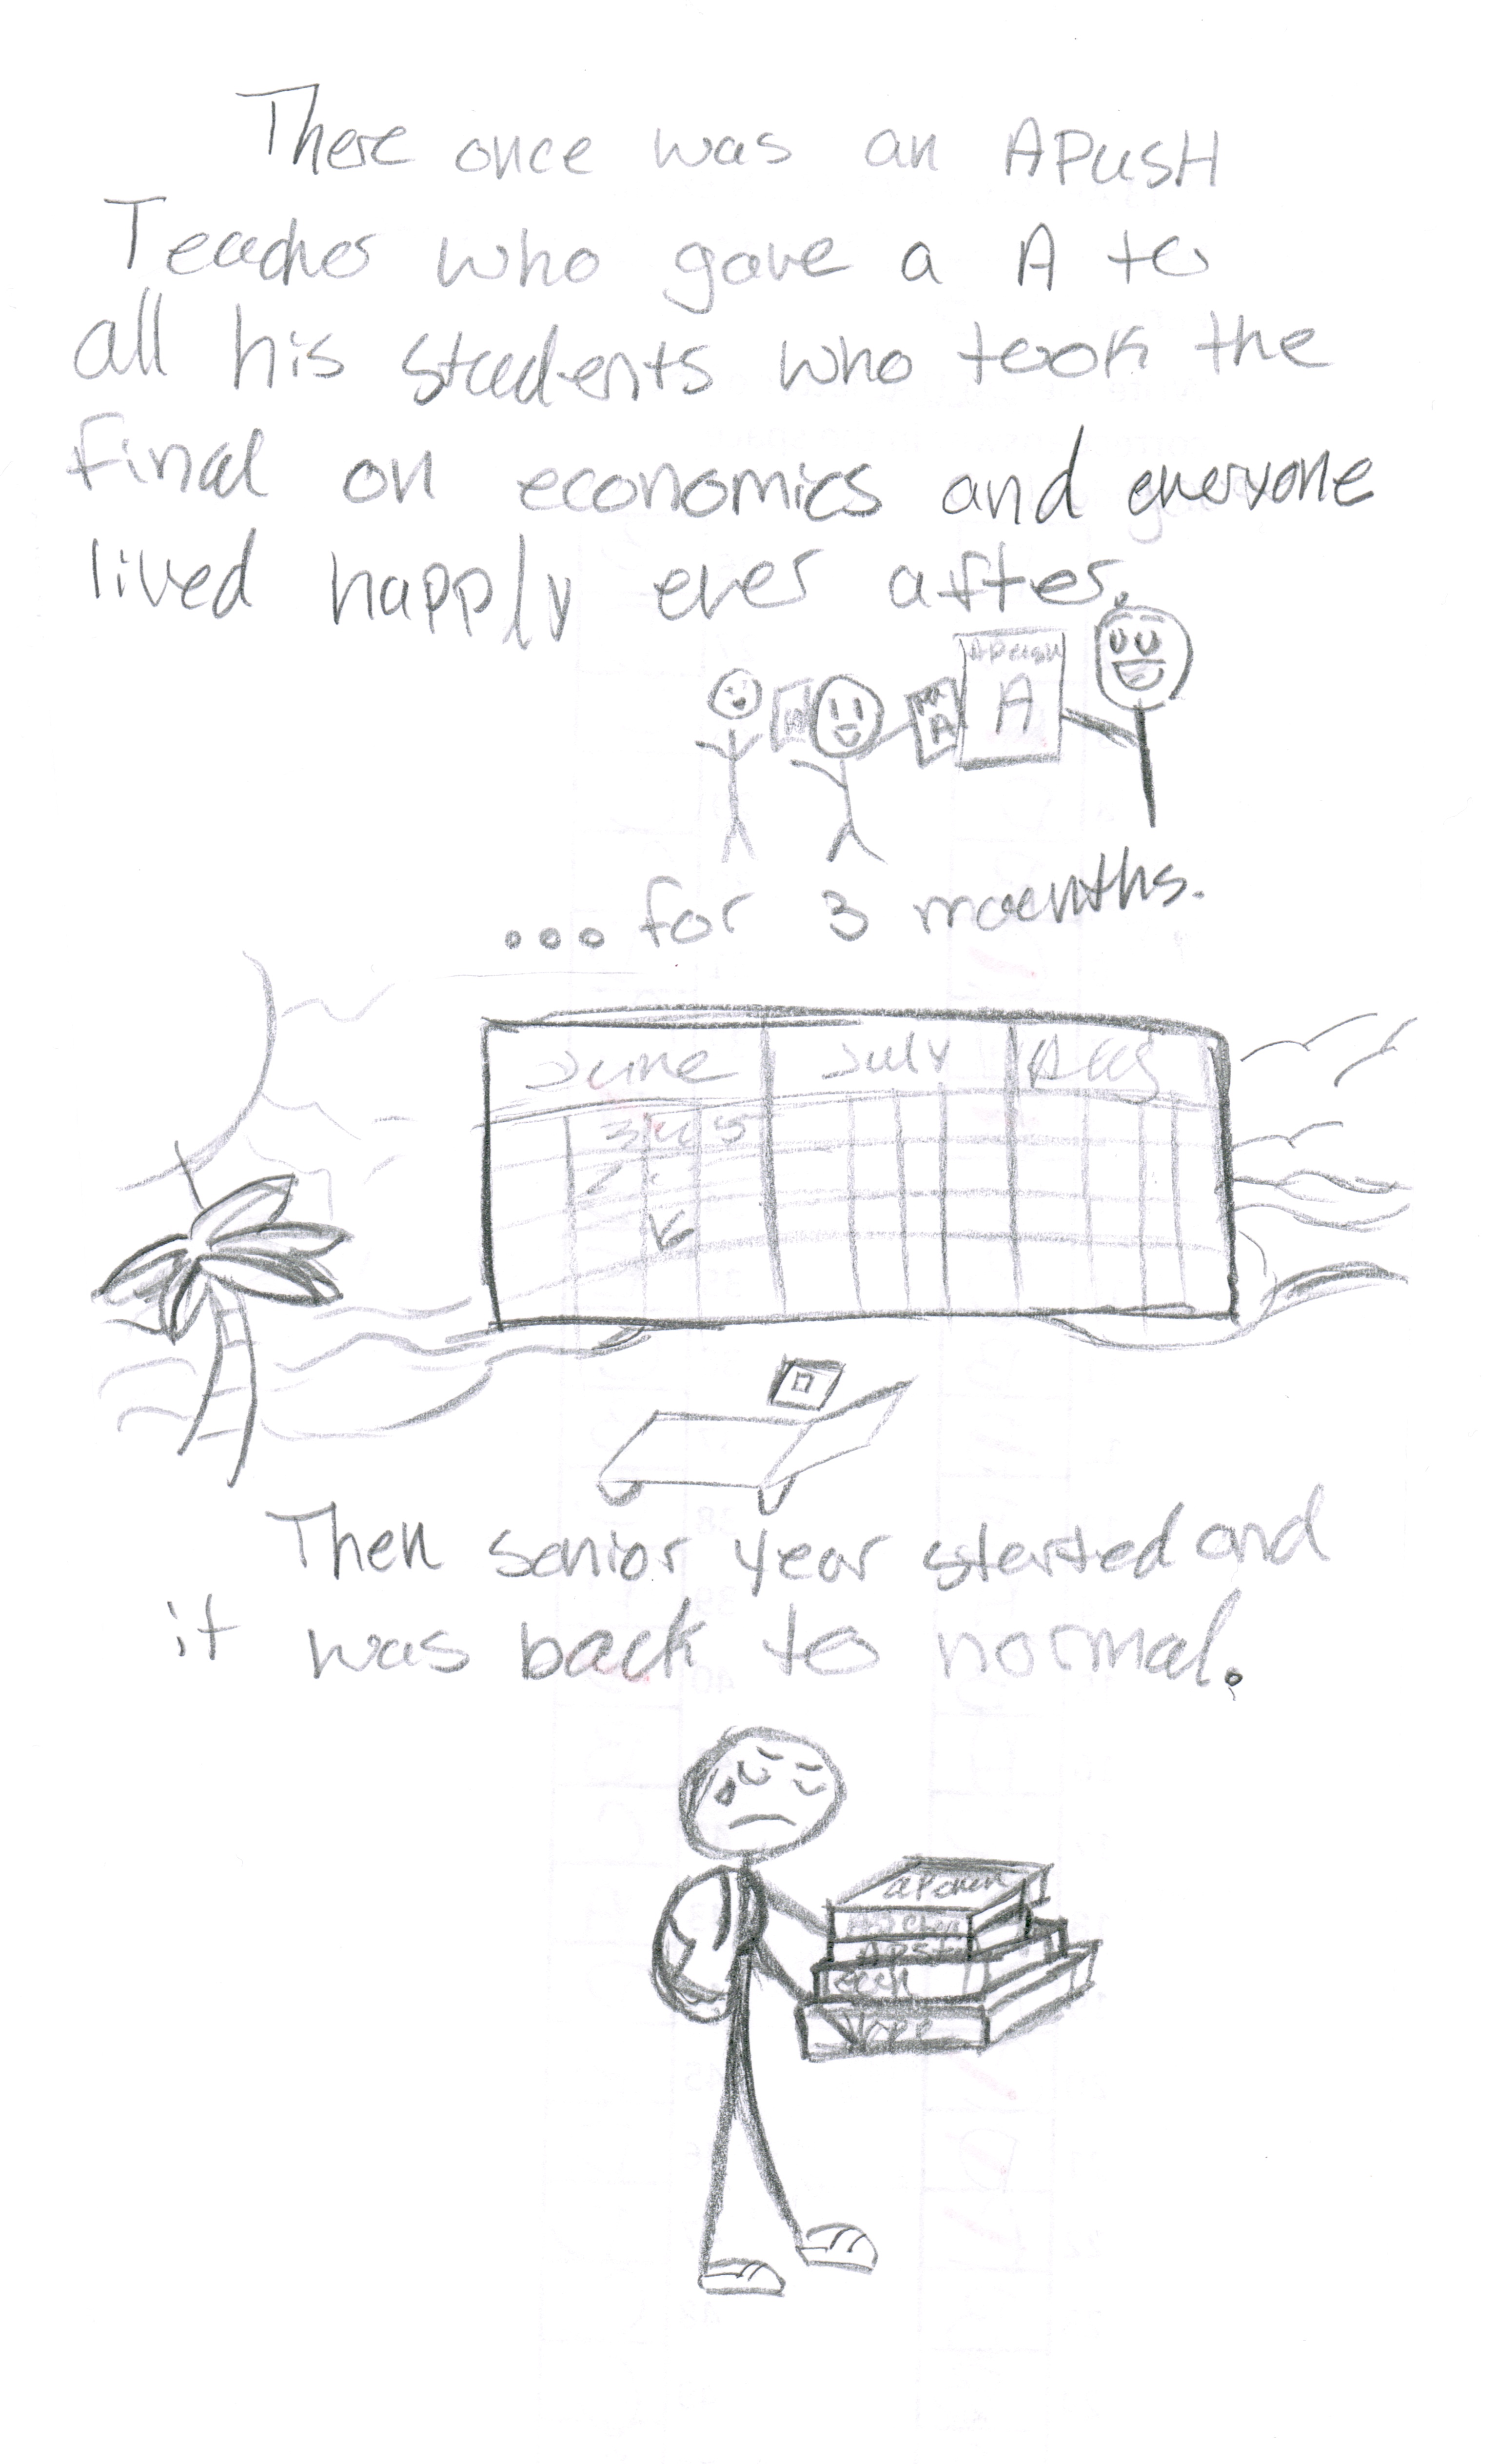 There once was an APUSH
Teacher who gave a A to
all his students who took the
final on economics and everyone
lived happly ever after.
APUSH
A
A
A
... for 3 moenths.
June July Aug
3 4 5
Then senior year started and
it was back to normal.
AP chem
AP St
econ